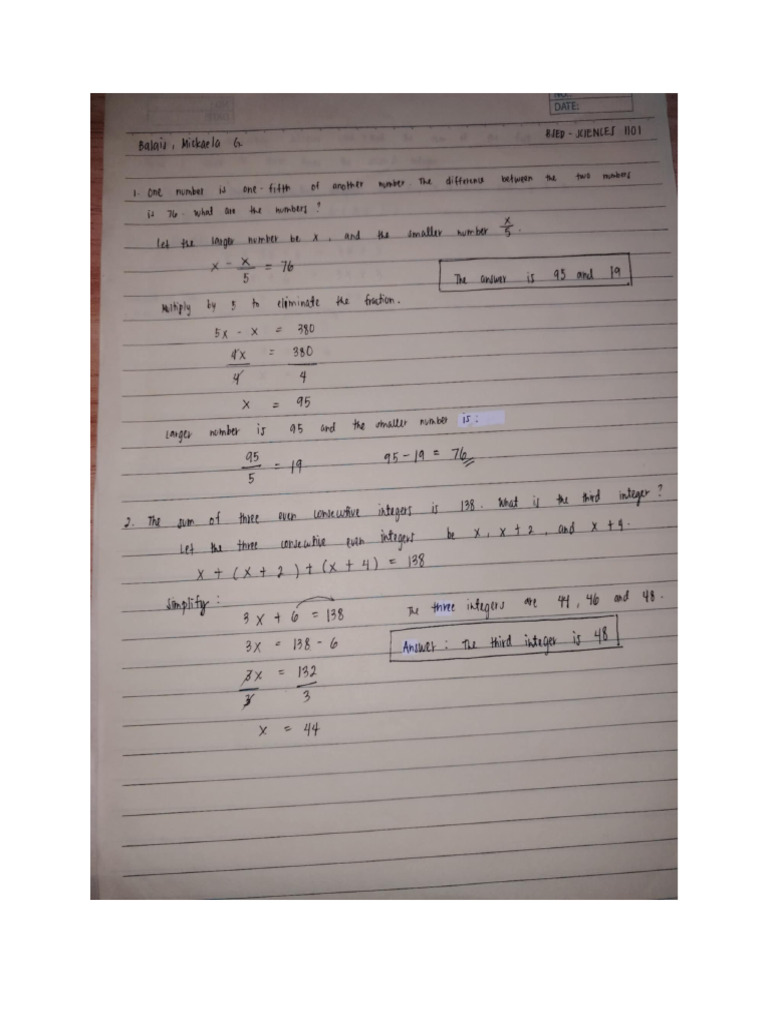 NO.
DATE:
Balais, Mickaela G.
BSED - SCIENCES 1101
1. One number is one-fifth of another number. The difference between the two numbers
is 76. What are the numbers?
Let the larger number be x, and the smaller number x/5.
x - x/5 = 76
The answer is 95 and 19
Multiply by 5 to eliminate the fraction.
5x - x = 380
4x/4 = 380/4
x = 95
Larger number is 95 and the smaller number is:
95/5 = 19
95 - 19 = 76
2. The sum of three even consecutive integers is 138. What is the third integer?
Let the three consecutive even integers be x, x + 2, and x + 4.
x + (x + 2) + (x + 4) = 138
Simplify:
3x + 6 = 138
The three integers are 44, 46 and 48.
3x = 138 - 6
Answer: The third integer is 48
3x/3 = 132/3
x = 44